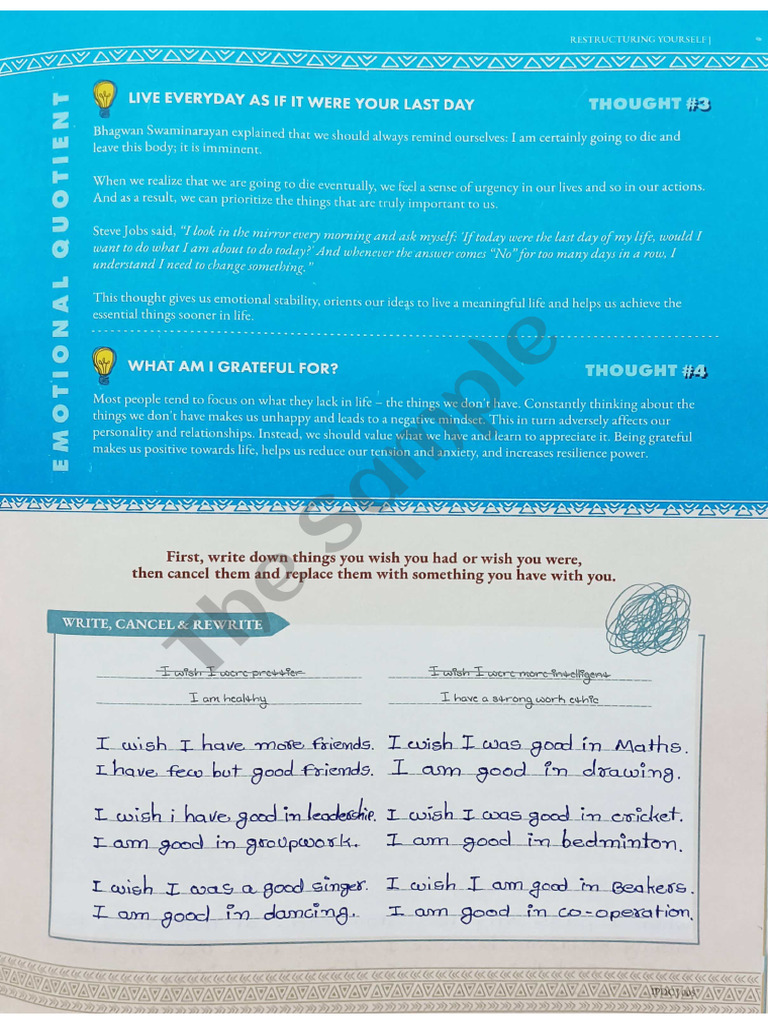 RESTRUCTURING YOURSELF |
EMOTIONAL QUOTIENT
LIVE EVERYDAY AS IF IT WERE YOUR LAST DAY
THOUGHT #3
Bhagwan Swaminarayan explained that we should always remind ourselves: I am certainly going to die and
leave this body; it is imminent.
When we realize that we are going to die eventually, we feel a sense of urgency in our lives and so in our actions.
And as a result, we can prioritize the things that are truly important to us.
Steve Jobs said, "I look in the mirror every morning and ask myself: 'If today were the last day of my life, would I
want to do what I am about to do today?' And whenever the answer comes "No" for too many days in a row, I
understand I need to change something."
This thought gives us emotional stability, orients our ideas to live a meaningful life and helps us achieve the
essential things sooner in life.
WHAT AM I GRATEFUL FOR?
THOUGHT #4
Most people tend to focus on what they lack in life – the things we don't have. Constantly thinking about the
things we don't have makes us unhappy and leads to a negative mindset. This in turn adversely affects our
personality and relationships. Instead, we should value what we have and learn to appreciate it. Being grateful
makes us positive towards life, helps us reduce our tension and anxiety, and increases resilience power.
The Sample
First, write down things you wish you had or wish you were,
then cancel them and replace them with something you have with you.
WRITE, CANCEL & REWRITE
I wish I were prettier
I am healthy
I wish I were more intelligent
I have a strong work ethic
I wish I have more friends.
I have few but good friends.
I wish I was good in Maths.
I am good in drawing.
I wish i have good in leadership.
I am good in groupwork.
I wish I was good in cricket.
I am good in bedminton.
I wish I was a good singer.
I am good in dancing.
I wish I am good in Beakers.
I am good in co-operation.